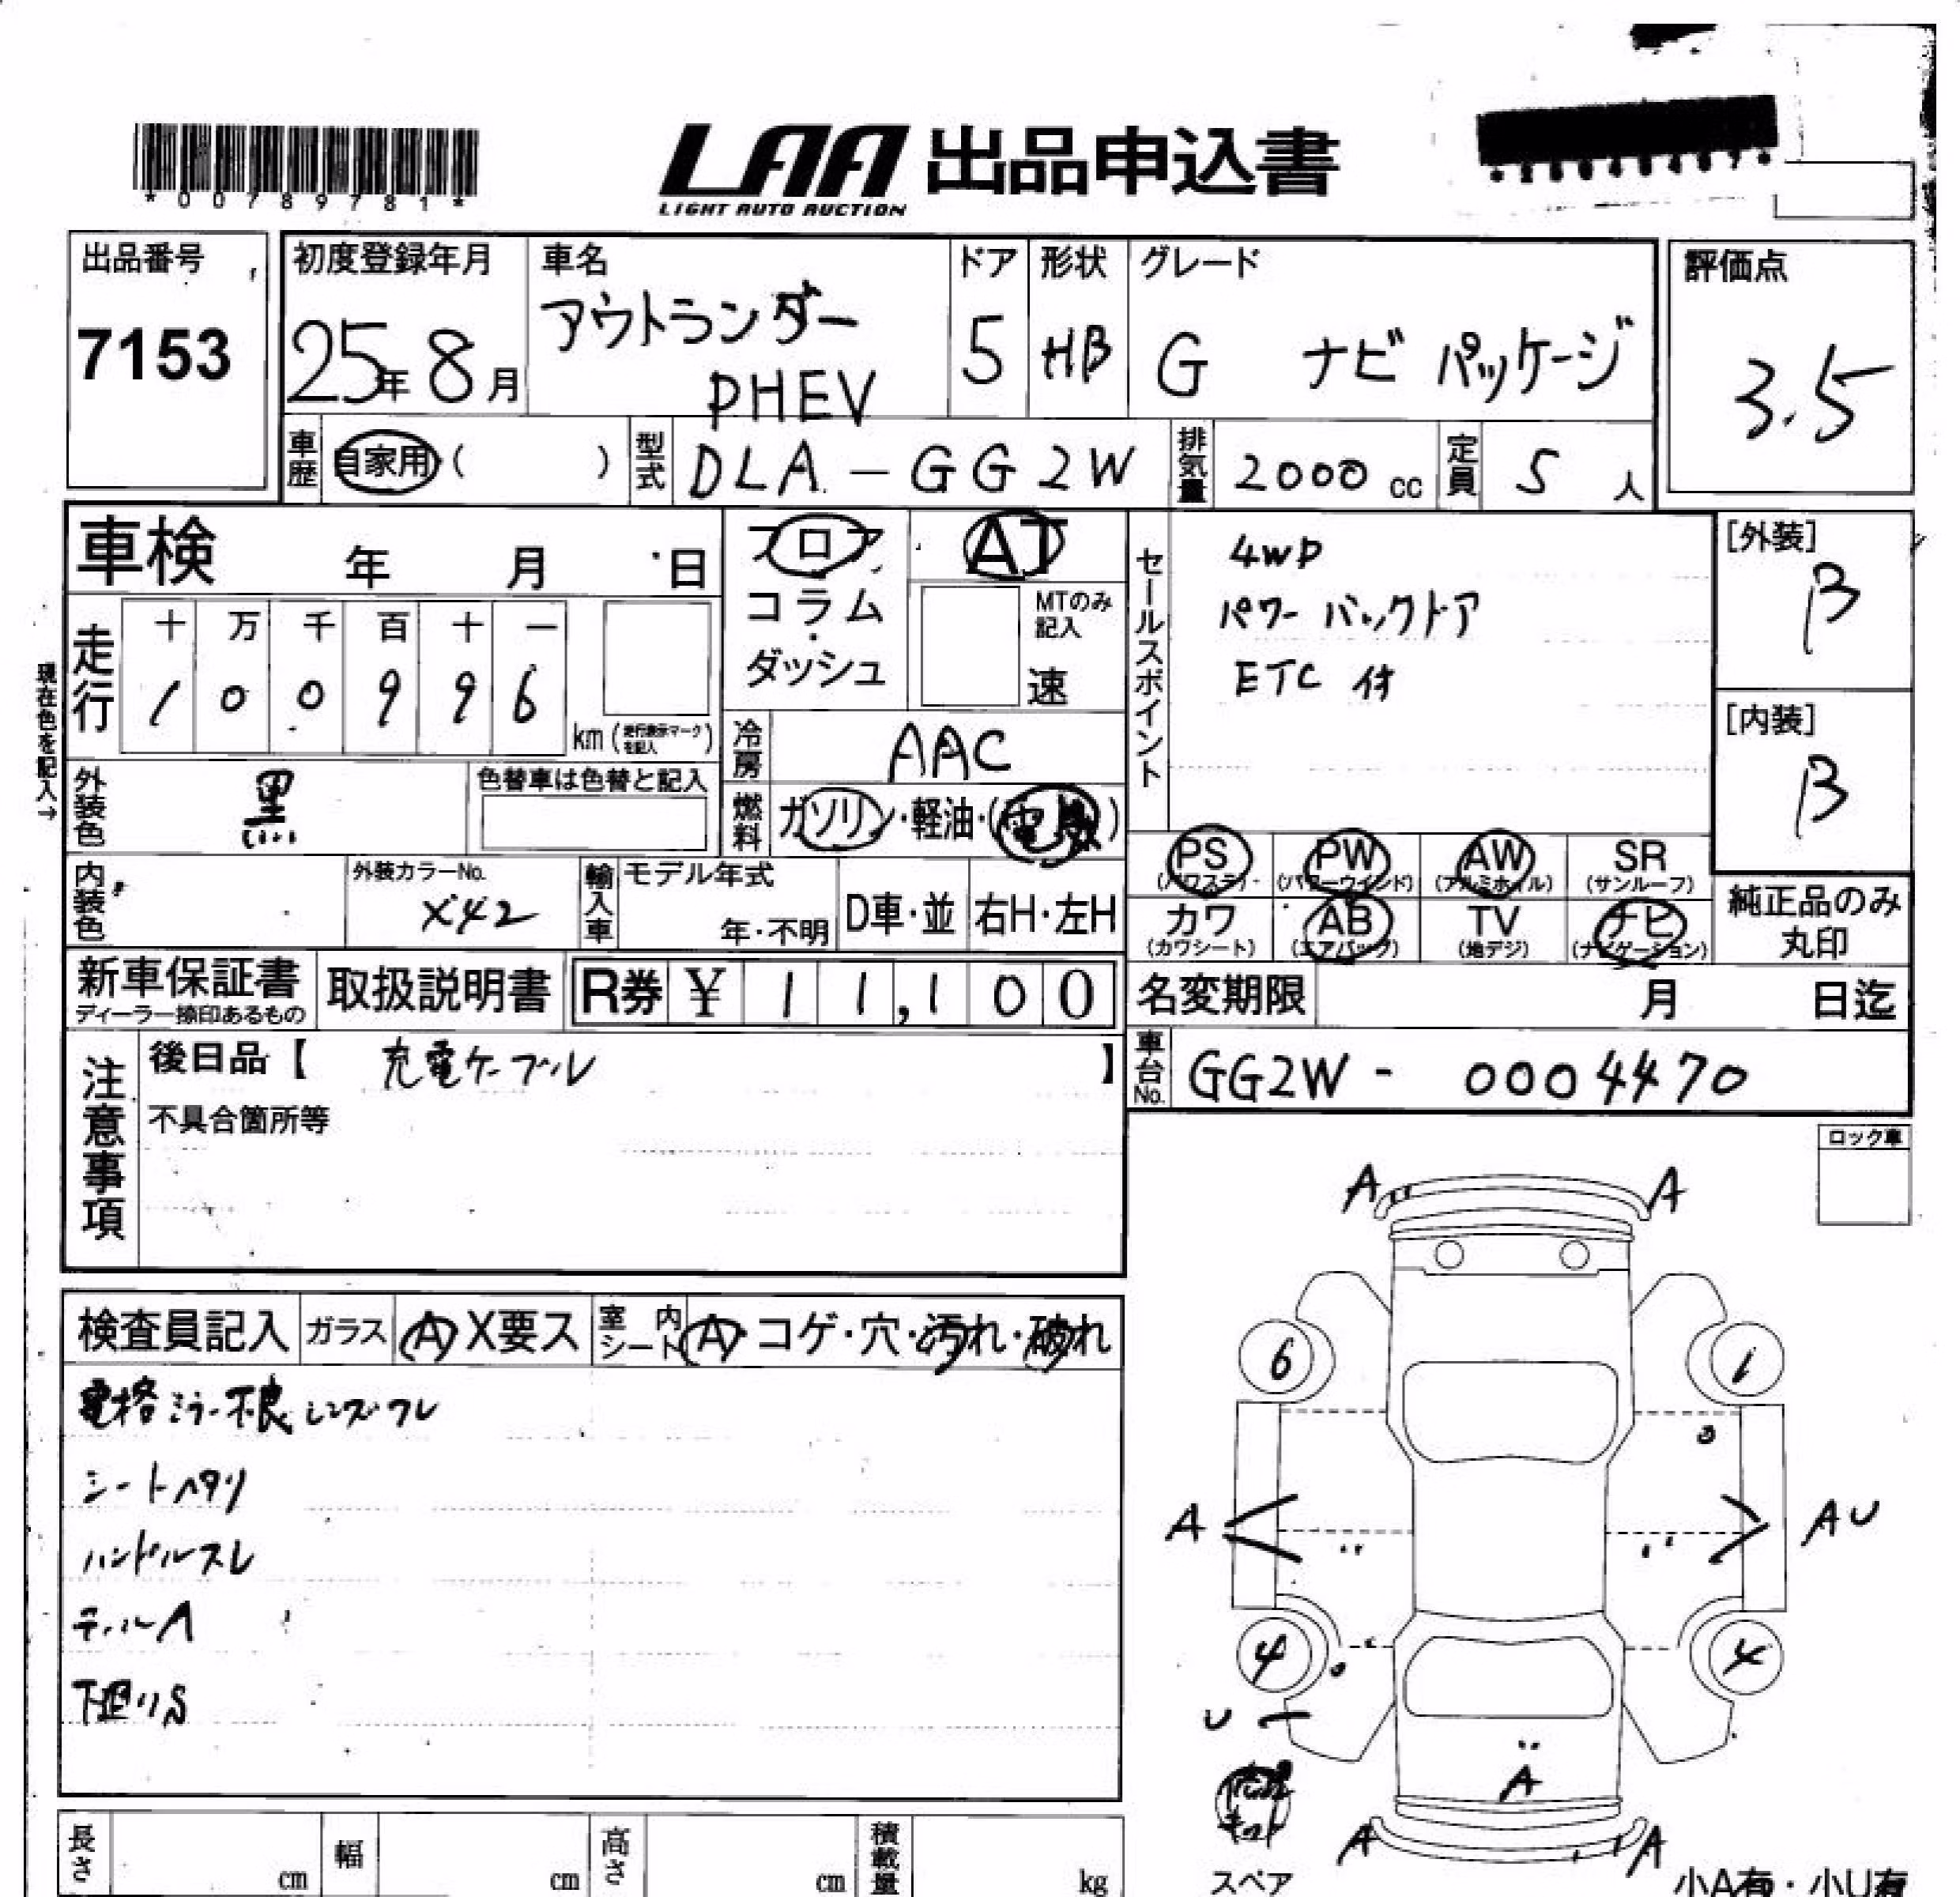 *00789781*
LAA 出品申込書
LIGHT AUTO AUCTION
出品番号
7153
初度登録年月
25年8月
車名
アウトランダー
PHEV
ドア
5
形状
HB
グレード
G ナビ パッケージ
評価点
3.5
車歴 自家用・( )
型式 DLA-GG2W
排気量 2000 cc
定員 5 人
車検 年 月 日
フロア
コラム
・
ダッシュ
AT
MTのみ
記入
速
セールスポイント
4WD
パワーバックドア
ETC 付
[外装]
B
[内装]
B
現在色を記入→
走行
十 万 千 百 十 一
1 0 0 9 9 6
km (走行表示マークを記入)
冷房 AAC
外装色 黒
色替車は色替と記入
燃料 ガソリン・軽油・(電気)
内装色
外装カラーNo.
X42
輸入車
モデル年式
年・不明
D車・並
右H・左H
PS
(パワステ)
PW
(パワーウインド)
AW
(アルミホイル)
SR
(サンルーフ)
カワ
(カワシート)
AB
(エアバッグ)
TV
(地デジ)
ナビ
(ナビゲーション)
純正品のみ
丸印
新車保証書
ディーラー捺印あるもの
取扱説明書
R券 ¥ 11,100
名変期限 月 日迄
注意事項
後日品【 充電ケーブル 】
不具合箇所等
車台No. GG2W - 0004470
ロック車
検査員記入
ガラス A X要ス
室内シート A・コゲ・穴・汚れ・破れ
電格ミラー不良 レンズワレ
シートヘタリ
ハンドルスレ
テールA
下廻りS
A A
6 1
A AU
4 4
U
A
A A
スペア
小A有・小U有
長さ cm
幅 cm
高さ cm
積載量 kg